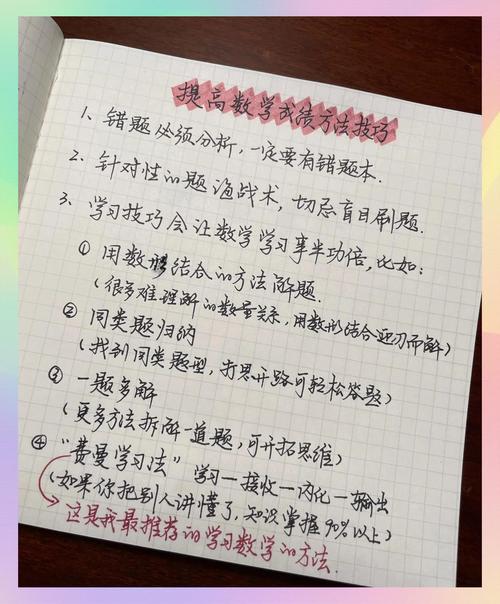 提高数学成绩方法技巧
1、错题必须分析，一定要有错题本.
2、针对性的题海战术，切忌盲目刷题.
3、学习技巧会让数学学习事半功倍，比如：
① 用数形结合的方法解题.
（很多难理解的数量关系，用数形结合迎刃而解）
② 同类题归纳
（找到同类题型，打思开路可轻松答题）
③ 一题多解
（更多方法拆解一道题，可开拓思维）
④ “费曼学习法” 学习—接收—内化—输出
（如果你把别人讲懂了，知识掌握90%以上）
这是我最推荐的学习数学的方法.